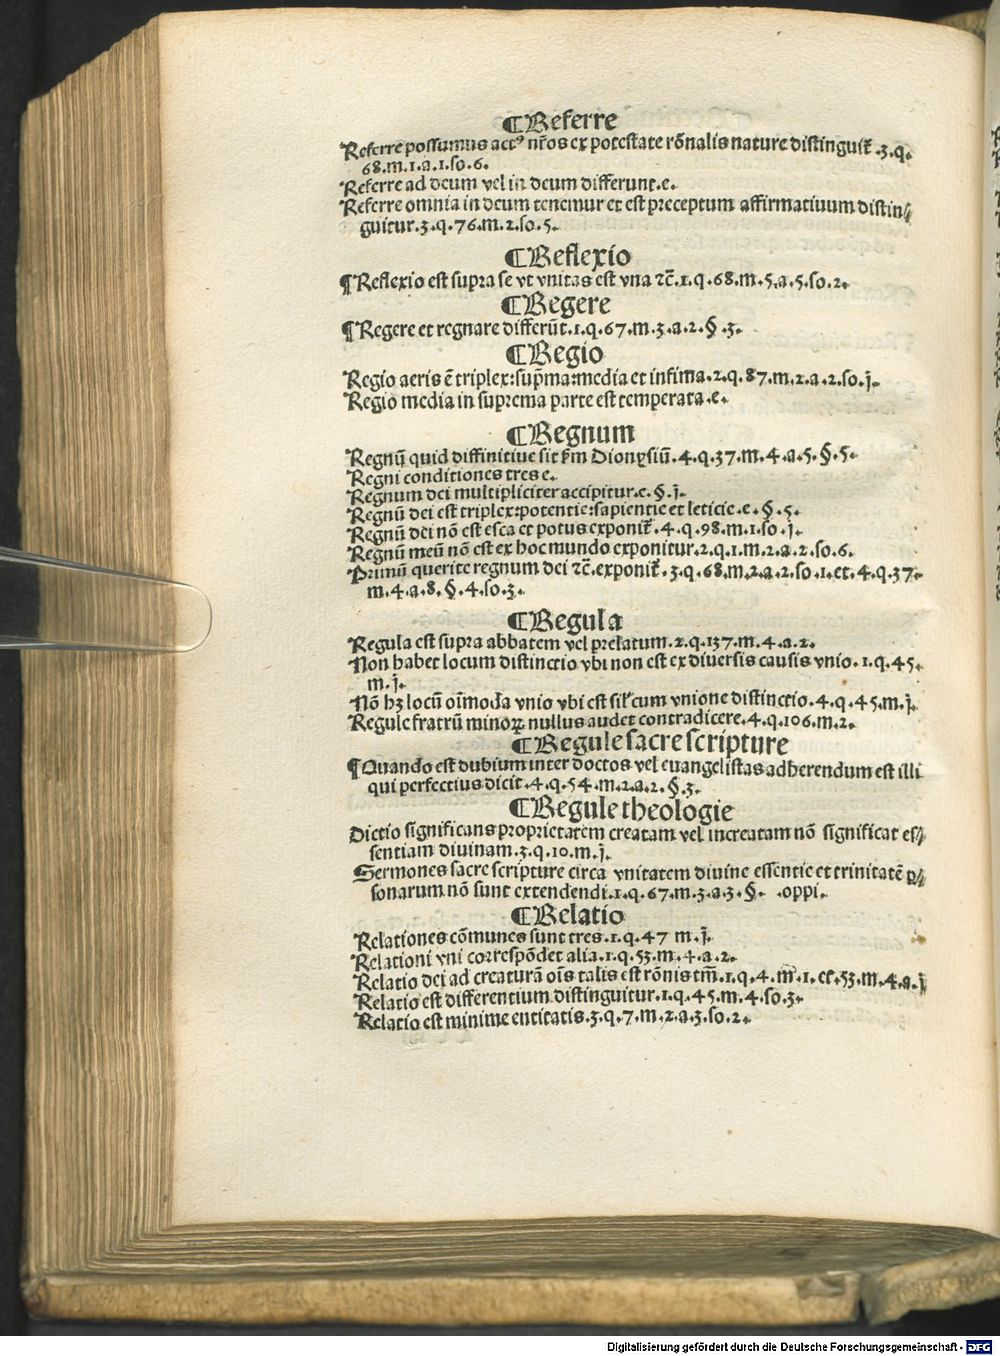 ¶Referre
Referre possumus actꝰ nr̄os ex potestate rōnalis nature distinguit̄ .3.q.
68.m.1.a.1.so.6.
Referre ad deum vel in deum differunt.e.
Referre omnia in deum tenemur et est preceptum affirmatiuum distin⸗
guitur.3.q.76.m.2.so.5.
¶Reflexio
¶Reflexio est supra se vt vnitas est vna ⁊c̄.1.q.68.m.5.a.5.so.2.
¶Regere
¶Regere et regnare differūt.1.q.67.m.3.a.2.§.3.
¶Regio
Regio aeris ē triplex:sup̄ma:media et infima.2.q.87.m.2.a.2.so.j.
Regio media in suprema parte est temperata.e.
¶Regnum
Regnū quid diffinitiue sit k̄m Dionysiū.4.q.37.m.4.a.5.§.5.
Regni conditiones tres e.
Regnum dei multipliciter accipitur.e.§.j.
Regnū dei est triplex:potentie:sapientie et leticie.e.§.5.
Regnū dei nō est esca et potus exponit̄.4.q.98.m.1.so.j.
Regnū meū nō est ex hoc mundo exponitur.2.q.1.m.2.a.2.so.6.
Primū querite regnum dei ⁊c̄.exponit̄.3.q.68.m.2.a.2.so.1.et.4.q.37.
m.4.a.8.§.4.so.3.
¶Regula
Regula est supra abbatem vel prelatum.2.q.137.m.4.a.2.
Non habet locum distinctio vbi non est ex diuersis causis vnio.1.q.45.
m.j.
Nō hꝫ locū oīmoda vnio vbi est sil̄ cum vnione distinctio.4.q.45.m.j.
Regule fratrū minoꝝ nullus audet contradicere.4.q.106.m.2.
¶Regule sacre scripture
¶Quando est dubium inter doctos vel euangelistas adherendum est illi
qui perfectius dicit.4.q.54.m.2.a.2.§.3.
¶Regule theologie
Dictio significans proprietatem creatam vel increatam nō significat es⸗
sentiam diuinam.3.q.10.m.j.
Sermones sacre scripture circa vnitatem diuine essentie et trinitatē ꝑ⸗
sonarum nō sunt extendendi.1.q.67.m.3.a.3.§. .oppi.
¶Relatio
Relationes cōmunes sunt tres.1.q.47 m.j.
Relationi vni correspōdet alia.1.q.53.m.4.a.2.
Relatio dei ad creaturā oīs talis est rōnis tm̄.1.q.4.m.1.et.53.m.4.a.j
Relatio est differentium distinguitur.1.q.45.m.4.so.3.
Relatio est minime entitatis.3.q.7.m.2.a.3.so.2.
Digitalisierung gefördert durch die Deutsche Forschungsgemeinschaft - DFG